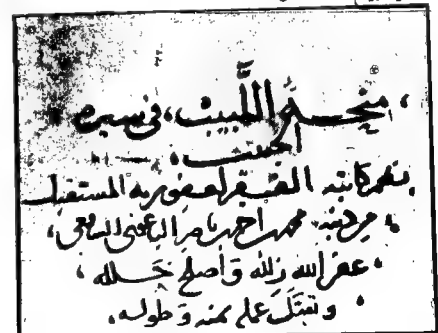 منحة اللبيب، في سيرة
الحبيب،
نظم كاتبه الفقير لعفو ربه المستقيل
من ذنبه محمد بن احمد بن ناصر الباعوني الشافعي،
غفر الله زلله وأصلح خلله،
وتقبل عمله بمنه وطوله،